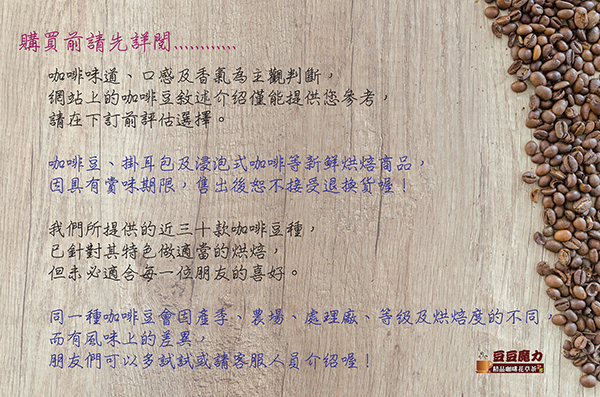 購買前請先詳閱............
咖啡味道、口感及香氣為主觀判斷，
網站上的咖啡豆敘述介紹僅能提供您參考，
請在下訂前評估選擇。
咖啡豆、掛耳包及浸泡式咖啡等新鮮烘焙商品，
因具有賞味期限，售出後恕不接受退換貨喔！
我們所提供的近三十款咖啡豆種，
已針對其特色做適當的烘焙，
但未必適合每一位朋友的喜好。
同一種咖啡豆會因產季、農場、處理廠、等级及烘焙度的不同，
而有風味上的差異，
朋友們可以多試試或請客服人員介紹喔！
豆豆魔力
精品咖啡花草茶